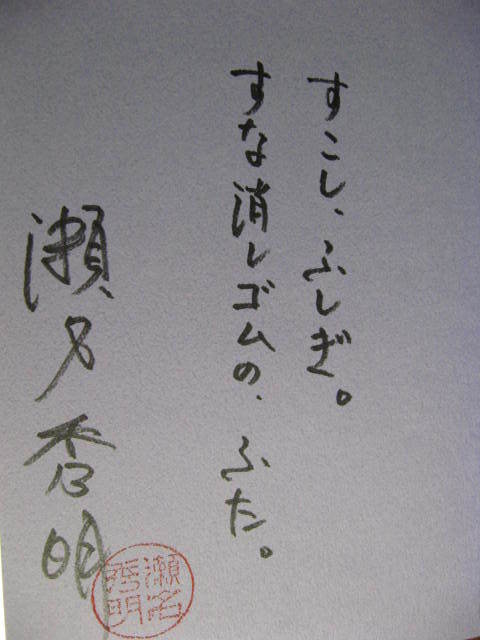 すこし、ふしぎ。
すな消しゴムの、ふた。
瀬名秀明
瀬名秀明